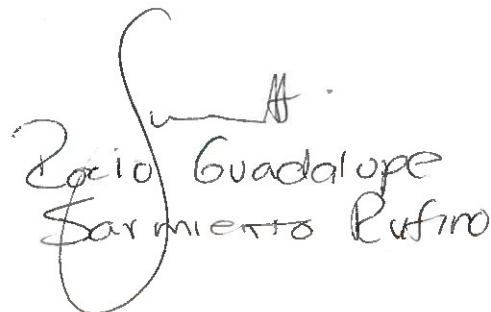 Rocio Guadalupe
Sarmiento Rufino